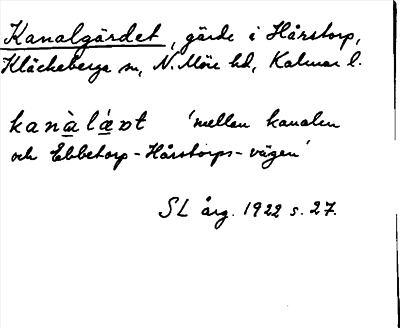 Kanalgärdet, gärde i Hårstorp,
Kläckeberga sn, N. Möre hd, Kalmar l.
kanàláɶt 'mellan kanalen
och Ebbetorp-Hårstorps-vägen'
SL årg. 1922 s. 27.